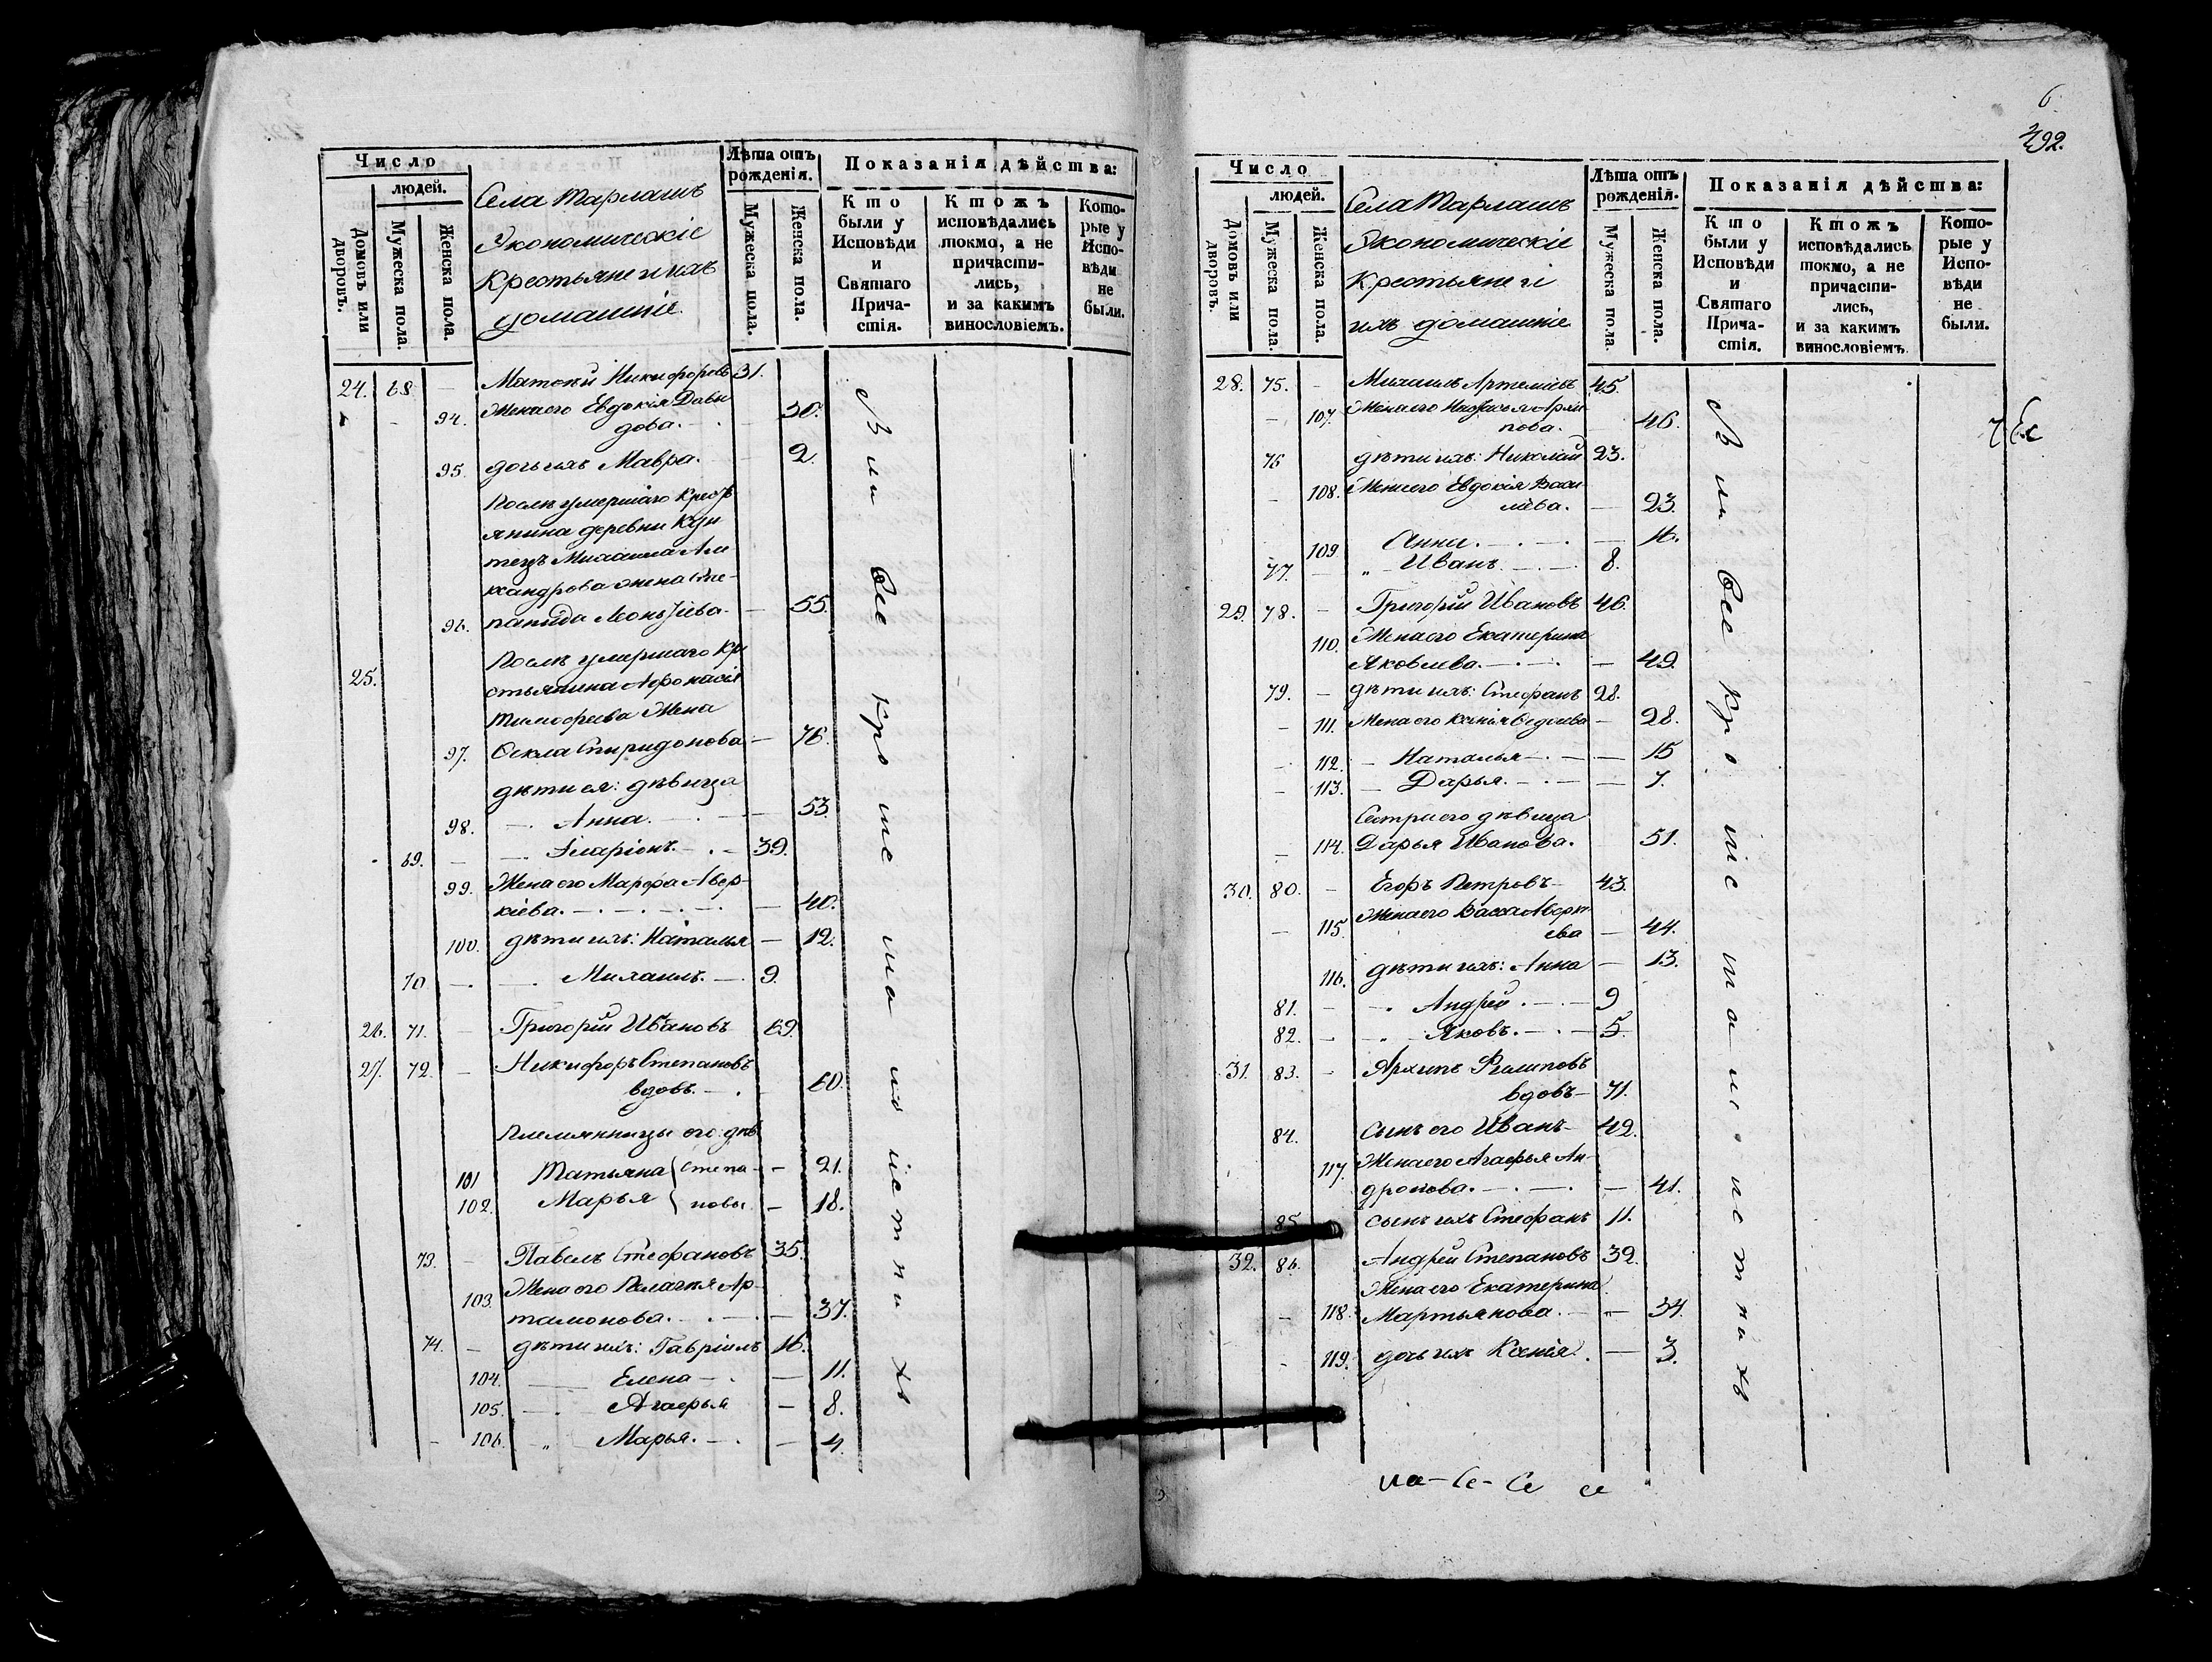 Число
людей.
Домовъ или дворовъ.
Мужеска пола.
Женска пола.
Села Тарлашъ
Экономическіе
Крестьяне и ихъ
домашніе.
Лѣта отъ рожденія.
Мужеска пола.
Женска пола.
Показанія дѣйства:
Кто были у Исповѣди и Святаго Причастія.
Ктожъ исповѣдались токмо, а не причастились, и за какимъ винословіемъ.
Которые у Исповѣди не были.
24. 68 – Матѳей Никифоровъ 31.
94. Жена его Евдокія Давы
дова. 30.
95. дочь ихъ Мавра. 2.
Послѣ умершаго крест
янина деревни Куи
тецъ Михаила Але
ксандрова жена Сте-
96. панида Леонтіева – 55.
25. Послѣ умершаго кре
стьянина Афонасія
Тимофеева Жена
97. Ѳекла Спиридонова – 76.
дѣти ея: дѣвица
98. – Анна. – 53.
69. – Іларіонъ. – 39.
99. Жена его Марфа Авер-
кіева. – 40.
100. дѣти ихъ: Наталья – 12.
70 – Михаилъ. – 9.
26. 71. – Григорій Ивановъ 69.
27. 72. – Никифоръ Степановъ
вдовъ. – 60.
Племянницы его: дѣв.
101 Татьяна Степа- – 21.
102. Марья новы – 18.
73. – Павелъ Стефановъ 35.
103. Жена его Пелагія Ар-
тамонова. – 37.
74. – дѣти ихъ: Гавріилъ 16.
104. – Елена – 11.
105. – Агафья – 8.
106. „ Марья. – 4.
6.
492.
Число
людей.
Домовъ или дворовъ.
Мужеска пола.
Женска пола.
Села Тарлашъ
Экономическіе
Крестьяне и
ихъ домашніе
Лѣта отъ рожденія.
Мужеска пола.
Женска пола.
Показанія дѣйства:
Кто были у Исповѣди и Святаго Причастія.
Ктожъ исповѣдались токмо, а не причастились, и за какимъ винословіемъ.
Которые у Исповѣди не были.
28. 75. – Михаилъ Артеміевъ 45.
107. Жена его Настасья Архи
пова. 46.
76 дѣти ихъ: Николай 23.
108. Жена его Евдокія Васи
ліева. – 23.
109 Анна. – 16.
77. – „ Иванъ. – 8.
29. 78. – Григорій Ивановъ 46.
110. Жена его Екатерина
Яковлева. – 49.
79. – дѣти ихъ: Стефанъ 28.
111. Жена его Ксенія Ѳедоева – 28.
112. – Наталья – 15
113. – Дарья. – 7.
Сестра его дѣвица
114. Дарья Иванова. 51.
30. 80. – Егоръ Петровъ – 43.
115. Жена его Васса Аверкі
ева – 44.
116. дѣти ихъ: Анна – 13.
81. – Андрей. – 9
82. – „ Яковъ. – 5.
31. 83. – Архипъ Филиповъ
вдовъ – 71.
84. сынъ его Иванъ – 42.
117. Жена его Агафья Ан-
дронова. – 41.
85 сынъ ихъ Стефанъ 11.
32. 86. Андрей Степановъ 39.
Жена его Екатерина
118. Мартьянова. – 34.
119. дочь ихъ Ксенія. – 3.